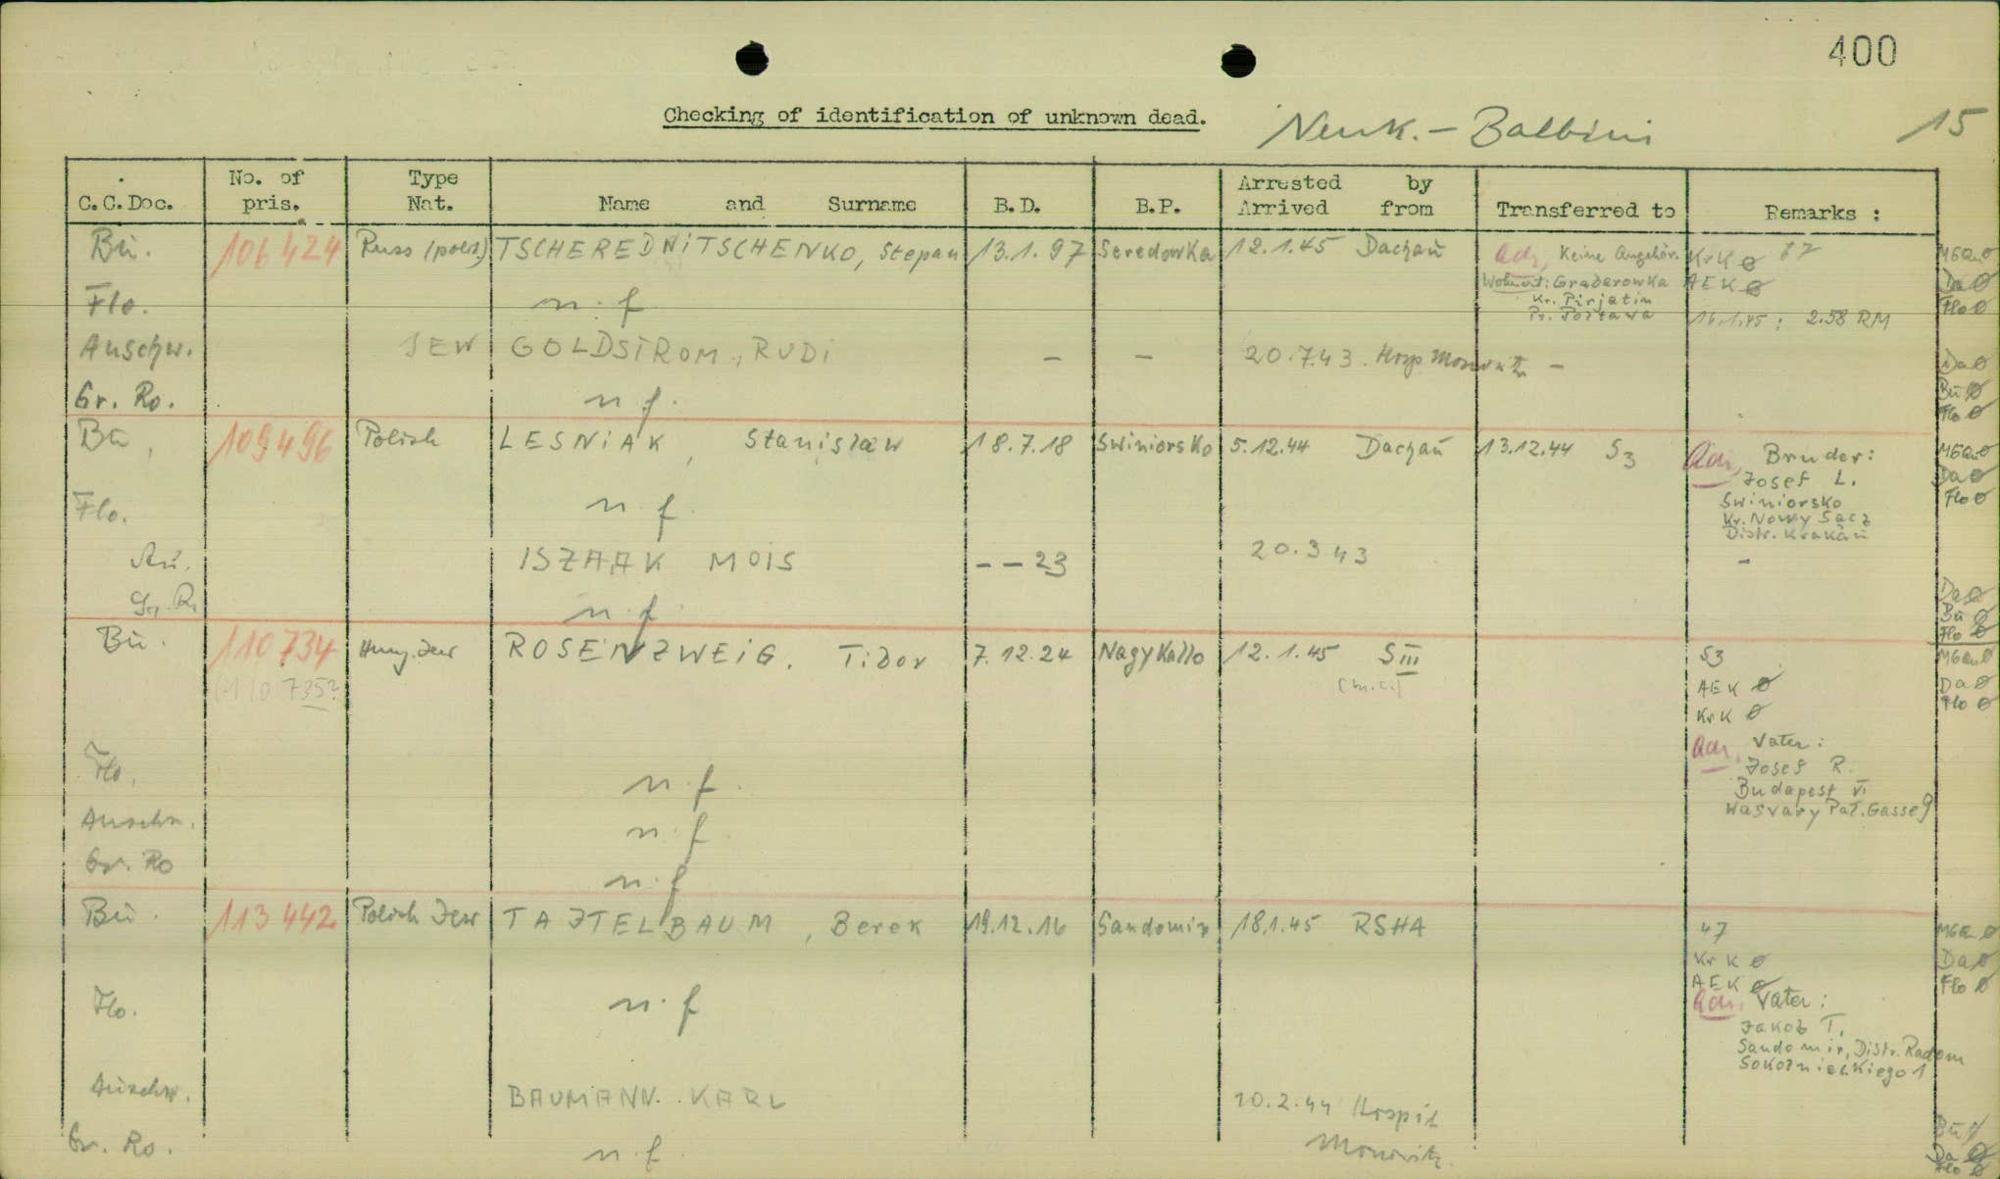 400
Checking of identification of unknown dead. Neuk. - Balbini 15
C.C.Doc. No. of pris. Type Nat. Name and Surname B.D. B.P. Arrested by Arrived from Transferred to Remarks :
Bu. 106424 Russ (polit.) TSCHEREDNITSCHENKO, Stepan 13.1.97 Seredowka 12.1.45 Dachau Adr. Keine Angehör. KrK ø 67
Wohnort: Graderowka AEK ø
Kr. Pirjatin
Pr. Poltawa 16.1.45 : 2.58 RM
MGau ø
Da ø
Flo ø
Flo. n.f
Auschw. JEW GOLDSTROM, RUDI - - 20.7.43. Hosp Monowitz -
Gr. Ro. n.f.
Da ø
Bu ø
Flo ø
Bu, 109496 Polish LESNIAK, Stanislaw 18.7.18 Swiniorsko 5.12.44 Dachau 13.12.44 S3 Adr, Bruder:
Josef L.
Swiniorsko
Kr. Nowy Sacz
Distr. Krakau
MGau ø
Da ø
Flo ø
Flo. n.f
Au. ISZAAK MOIS - - 23 20.3 43 -
Gr. R. n.f.
Da ø
Bu ø
Flo ø
Bu. 110734 Hung. Jew ROSENZWEIG. Tibor 7.12.24 Nagy Kallo 12.1.45 SIII S3
(110 735?)
AEK ø
KrK ø
Adr, Vater:
Josef R.
Budapest VI
Wasvary Pal. Gasse 9
MGau ø
Da ø
Flo ø
Flo. n.f.
Auschw. n.f
Gr. Ro n.f
Bu. 113442 Polish Jew TAJTELBAUM, Berek 19.12.16 Sandomir 18.1.45 RSHA 47
KrK ø
AEK ø
Adr, Vater:
Jakob T.
Sandomir, Distr. Radom
Sokolnickiego 1
MGau ø
Da ø
Flo ø
Flo. n.f
Auschw. BAUMANN. KARL 10.2.44 Hospit
Monowitz.
Gr. Ro. n.f.
Bu ø
Da ø
Flo ø